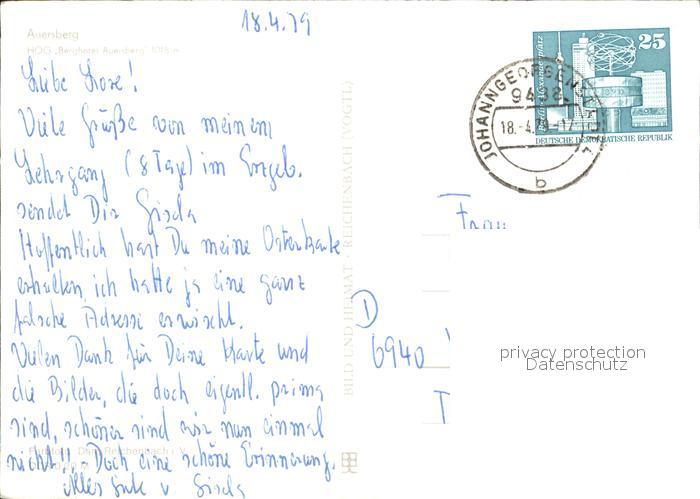 18.4.79
Auersberg
HOG „Berghotel Auersberg" 1018 m
Liebe Lore!
Viele Grüße von meinem
Lehrgang (8 Tage) im Erzgeb.
sendet Dir Gisela
Hoffentlich hast Du meine Osterkarte
erhalten, ich hatte ja eine ganz
falsche Adresse erwischt.
Vielen Dank für Deine Karte und
die Bilder, die doch eigentl. prima
sind, schöner sind wir nun einmal
nicht!! Doch eine schöne Erinnerung.
Alles Gute v Gisela
Reichenbach i. V.
BILD UND HEIMAT REICHENBACH (VOGTL)
25
Berlin-Alexanderplatz
DEUTSCHE DEMOKRATISCHE REPUBLIK
JOHANNGEORGENSTADT
18.-4.79-17
b
Frau
D
6940
privacy protection
Datenschutz